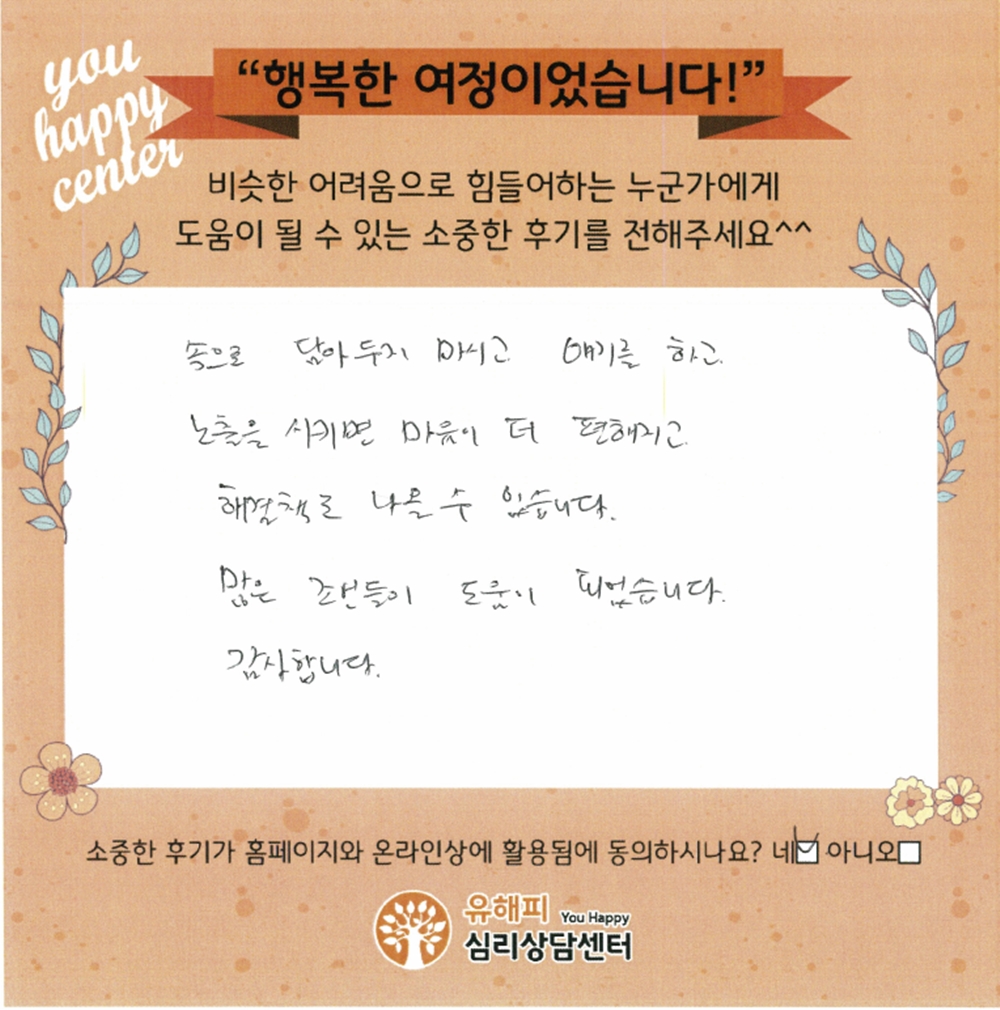 you
happy
center
“행복한 여정이었습니다!”
비슷한 어려움으로 힘들어하는 누군가에게
도움이 될 수 있는 소중한 후기를 전해주세요^^
속으로 담아두지 마시고 얘기를 하고
노출을 시키면 마음이 더 편해지고
해결책도 나올 수 있습니다.
많은 조언들이 도움이 되었습니다.
감사합니다.
소중한 후기가 홈페이지와 온라인상에 활용됨에 동의하시나요? 네 아니오
유해피 You Happy
심리상담센터